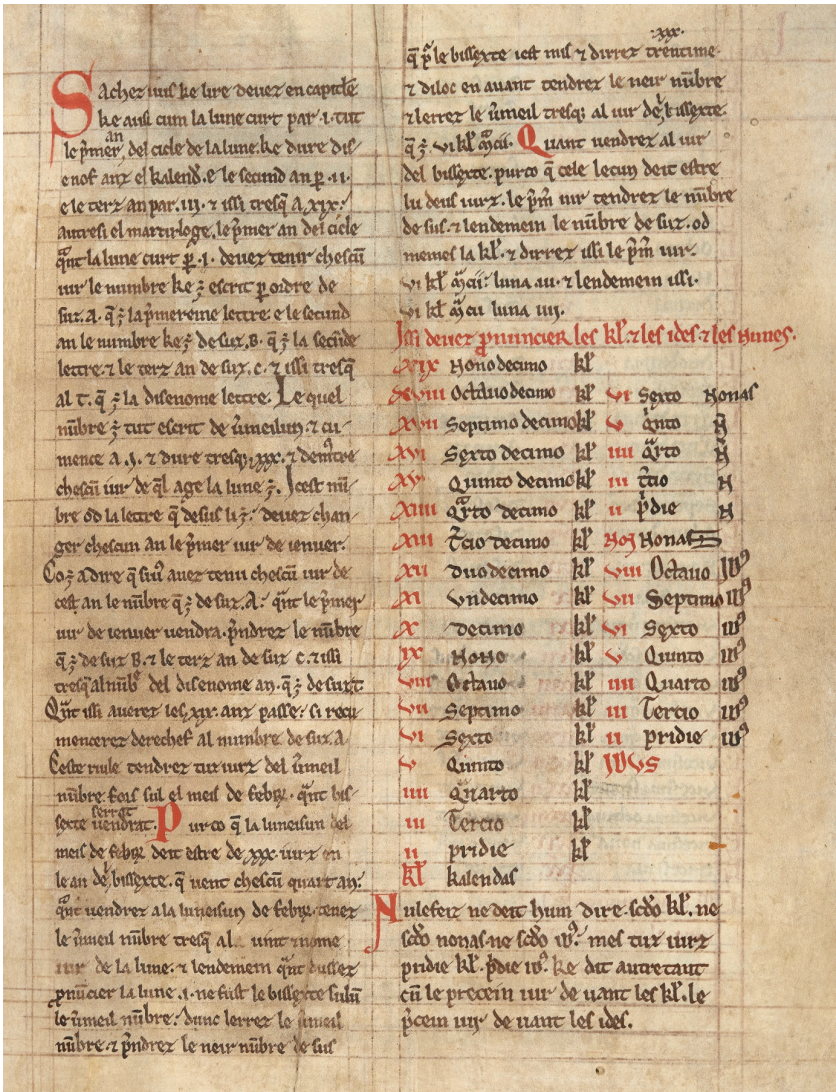 Sachez uus ke lire deuez en capitle
ke ausi cum la lune curt par .i. tut
an
le p̄mer, del cicle de la lune. ke dure dis-
enof anz el kalend̛. e le secund an p̱ .ii.
e le terz an par .iii. ⁊ issi tresq̄ a .xix:
autresi el martirloge. le p̄mer an del cicle
q̄nt la lune curt p̱ .i. deuez tenir chescū
iur le numbre ke ꝫ escrit p̱ ordre de
sur .a. q̄ ꝫ la p̄mereine lettre. e le secund
an le numbre ke ꝫ de sur .B. q̄ ꝫ la secūde
lettre. ⁊ le terz an de sur .c. ⁊ issi tresq̄
al t. q̄ ꝫ la disenome lettre. Le quel
nūbre ꝫ tut escrit de ūmeilun. ⁊ cu-
mence a .i. ⁊ dure tresq̄ .xxx. ⁊ demr̄e
chescū iur de q̄l age la lune ꝫ. Icest nū-
bre od la lettre q̄ desus li ꝫ: deuez chan-
ger chescun an le p̄mer iur de ienuer.
Co ꝫ a dire q̄ si uꝰ auez tenu chescū iur de
cest an le nūbre q̄ ꝫ de sur .A: q̄nt le p̄mer
iur de ienuer uendra. p̄ndrez le nūbre
q̄ ꝫ de sur B. ⁊ le terz an de sur c. ⁊ issi
tresq̄ al nūbͤ del disenome an. q̄ ꝫ de sur .t.
Q̄nt issi auerez les .xix. anz passe: si recu
mencerez derechef al numbre de sur .a.
Ceste riule tendrez tuz iurz del ūmeil
nūbre. fors sul el meis de febrꝭ. q̄nt bis-
serrat
sexte uendrat. Purco q̄ la luneisun del
meis de febrꝭ deit estre de .xxx. iurz en
le an de bissexte. q̄ uent chescū quart an:
q̄nt uendrez a la luneisun de febrꝭ. tenez
le ūmeil nūbre tresq̄ al uint ⁊ nome
iur de la lune. ⁊ lendemein q̄nt dussez
ꝓnūcier la lune .i. ne fust le bissexte sulū
le ūmeil nūbre: dunc lerrez le ūmeil
nūbre. ⁊ p̄ndrez le neir nūbre de sus
.xxx.
q̄ p̱ le bissexte iest mis ⁊ dirrez trentime.
⁊ diloc en auant tendrez le neir nūbre
⁊ lerrez le ūmeil tresq̄ al iur de bissexte.
q̄ ꝫ. vi kl̄ m̄cii. Quant uendrez al iur
del bissexte. purco q̄ cele lecun deit estre
lu deus iurz. le p̄m iur tendrez le nūbre
de sus. ⁊ lendemein le nūbre de suz. od
memes la kl̄. ⁊ dirrez issi le p̄m iur.
vi kl̄ m̄cii: luna .iii. ⁊ lendemein issi.
vi kl̄ m̄cii luna iiij.
Issi deuez ꝓnuncier les kl̄. ⁊ les ides. ⁊ les Nunes.
xix Nonodecimo kl̄
xviii Octauodecimo kl̄ vi Sexto Nonas
xvii Septimodecimo kl̄ v q̇nto N̄
xvi Sexto decimo kl̄ iiii q̄rto N̄
xv Quinto decimo kl̄ iii t̄cio N̄
xiiii Q̄rto decimo kl̄ ii p̄die N̄
xiii T̄cio decimo kl̄ Noɴ Nonas
xii duodecimo kl̄ viii Octauo idꝰ
xi vndecimo kl̄ vii Septimo idꝰ
x decimo kl̄ vi Sexto idꝰ
ix Nono kl̄ v Quinto idꝰ
viii Octauo kl̄ iiii Quarto idꝰ
vii Septimo kl̄ iii Tercio idꝰ
vi Sexto kl̄ ii pridie idꝰ
v Quinto kl̄ IDVS
iiii Quarto kl̄
iii Tercio kl̄
ii pridie kl̄
kl̄ kalendas
Nulefeiz ne deit hum dire. scd̄o kl̄. ne
scd̄o nonas. ne scd̄o idꝰ. mes tuz iurz
pridie kl̄. p̄die idꝰ. Ke dit autretant
cū le precein iur de uant les kl̄. le
p̄cein iur de uant les ides.